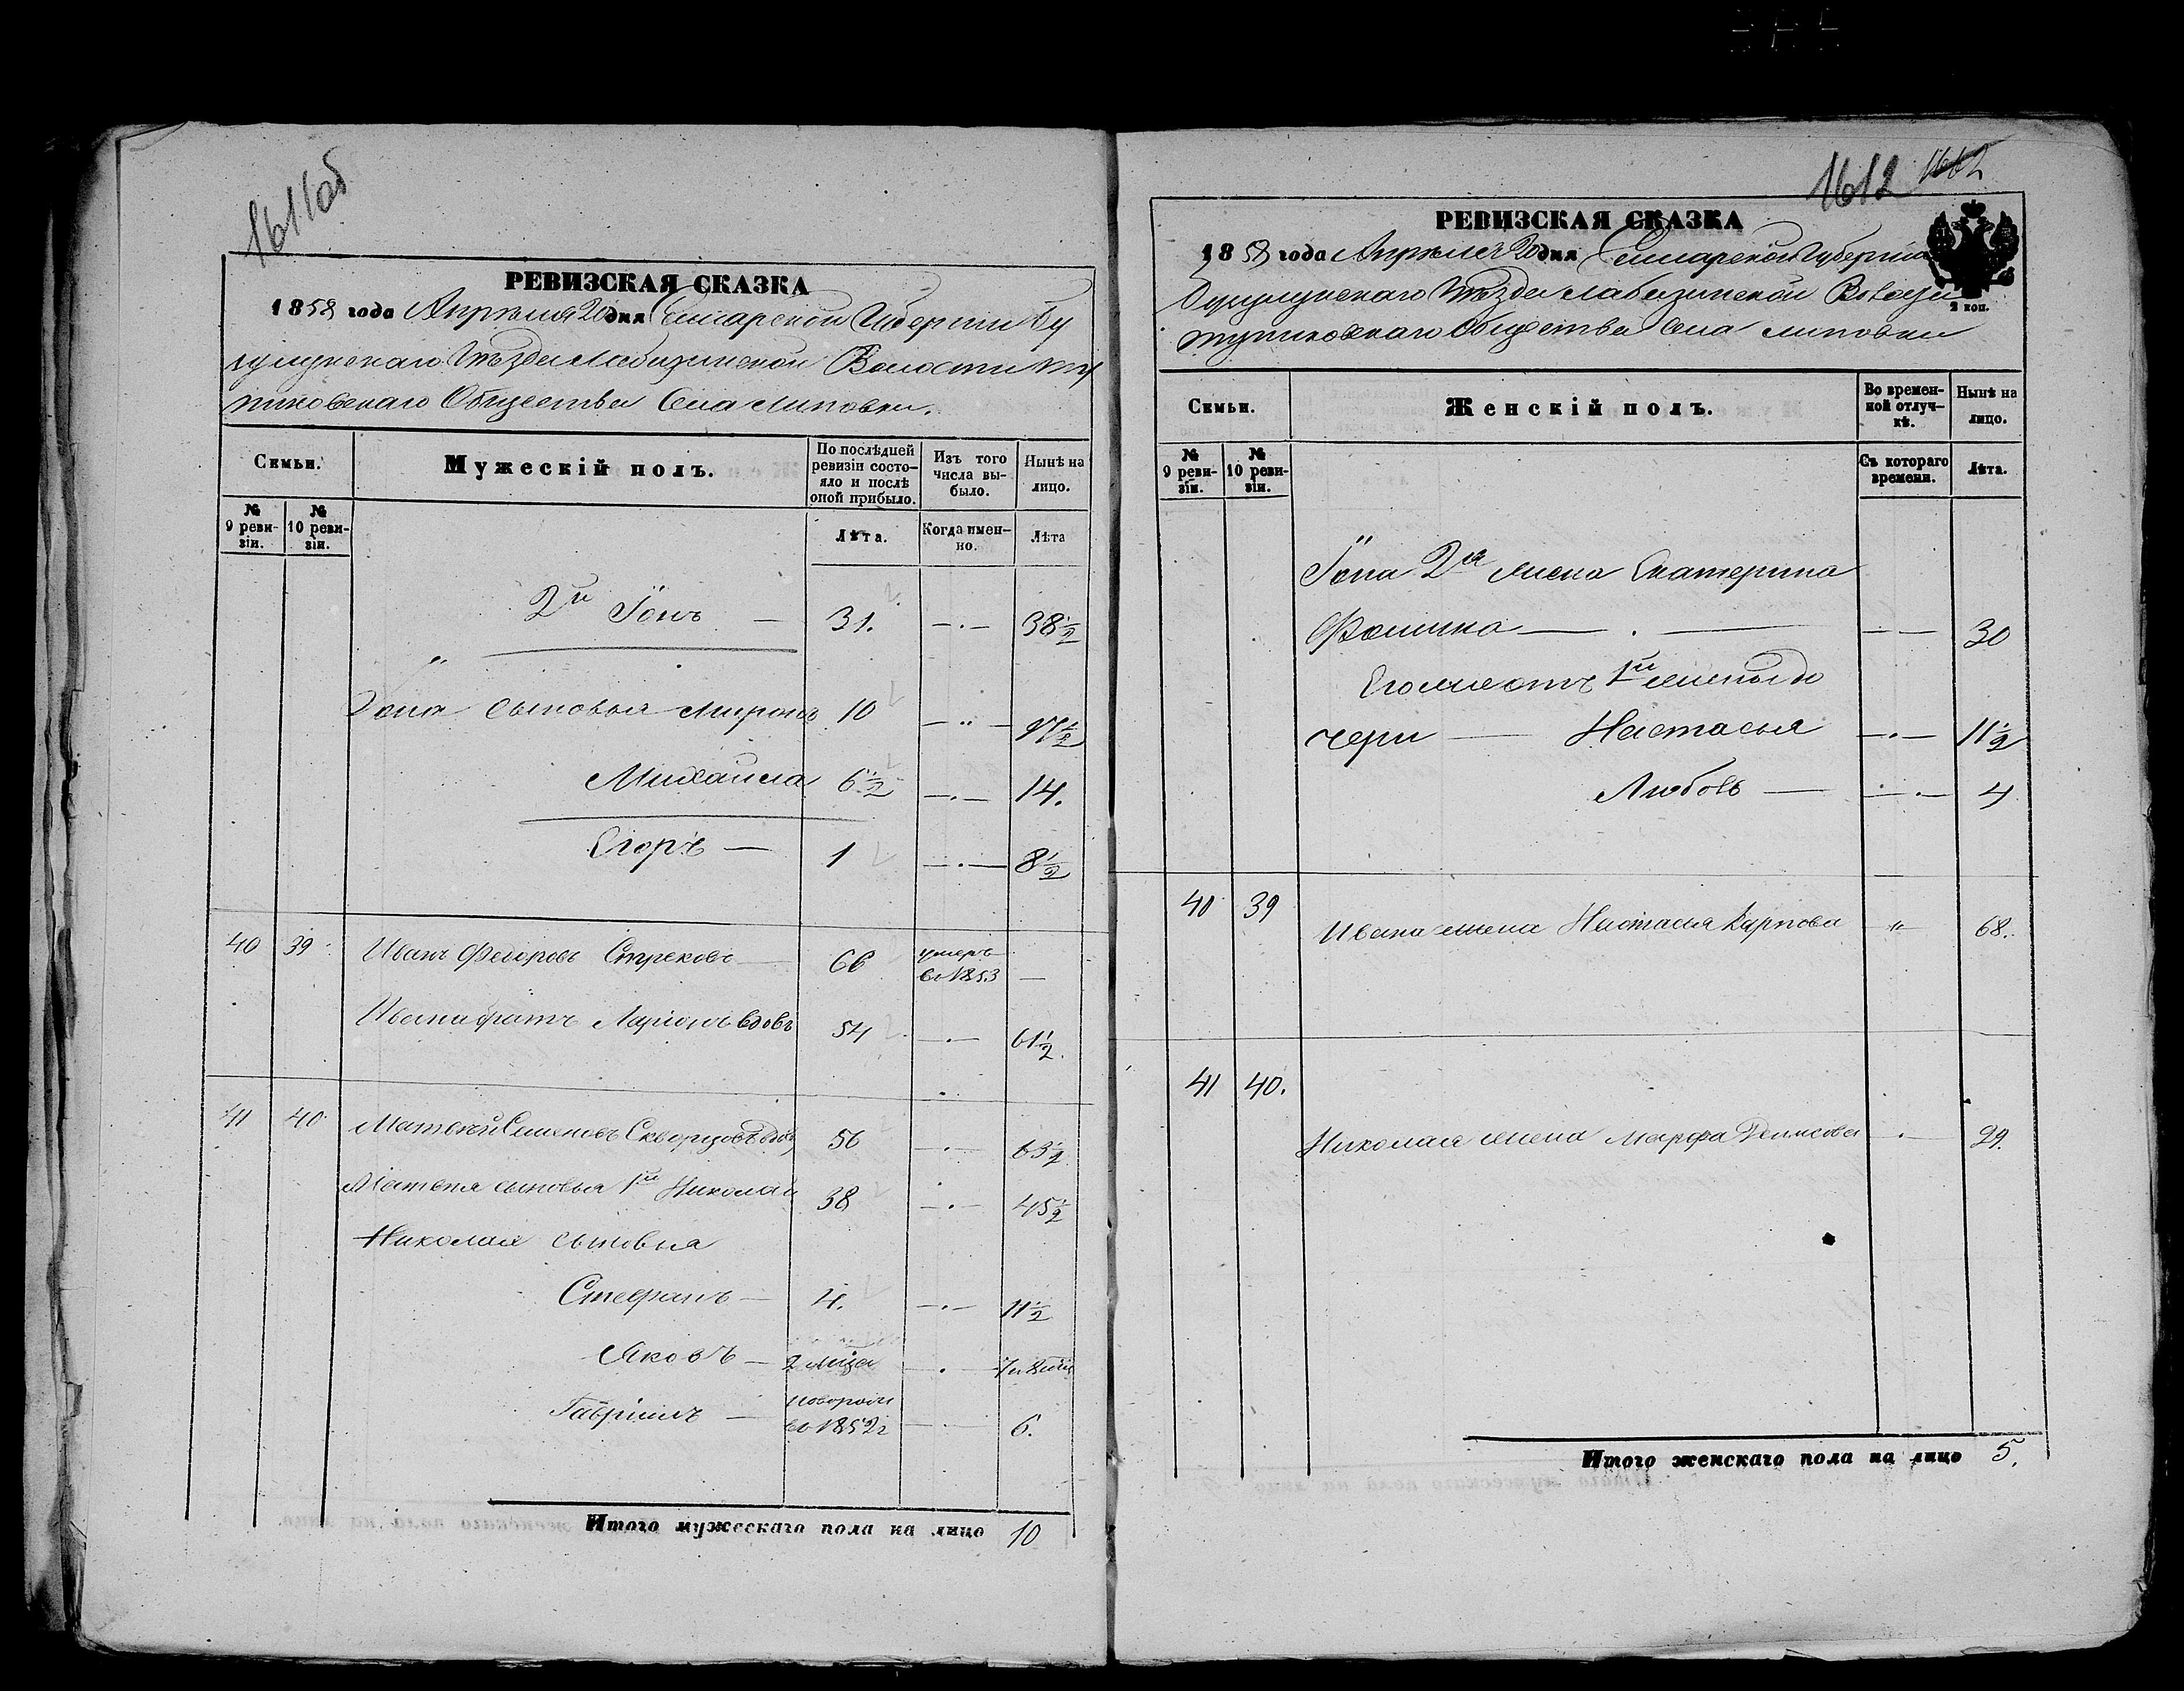 1611об
РЕВИЗСКАЯ СКАЗКА
1858 года Апреля 20 дня Самарской Губернии Бу
зулукскаго Уѣзда Лабазинской Волости
Общества Села Липовки.
Семьи.
Мужескій полъ.
По послѣдней ревизіи состояло и послѣ оной прибыло.
Изъ того числа выбыло.
Нынѣ на лицо.
№ 9 реви-зіи.
№ 10 реви-зіи.
Лѣта.
Когда имен-но.
Лѣта
2й Іонъ — 31. —.— 38½
Іона сыновья Миронъ 10 —"— 17½
Михайла 6½ —.— 14.
Егоръ — 1 —.— 8½
40 39 Иванъ Федоровъ — 66 умеръ въ 1853 —
Ивана братъ Ларіонъ вдовъ 54 —.— 61½.
41 40 Матвѣй Семеновъ Скворцовъ вдовъ 56 —.— 63½
Матвѣя сыновья 1й Николай 38 —.— 45½
Николая сыновья
Стефанъ — 4. —.— 11½
Яковъ — 2 мѣца — . 7 и 8 мѣц
Гавріилъ — новорож въ 1852г — 6.
Итого мужескаго пола на лицо 10
1612 1662
РЕВИЗСКАЯ СКАЗКА
1858 года Апреля 20 дня Самарской Губерніи
Бузулукскаго Уѣзда Лабазинской Волости
Общества Села Липовки
2 коп.
Семьи.
Женскій полъ.
Во времен-ной отлуч-кѣ.
Нынѣ на лицо.
№ 9 реви-зіи.
№ 10 реви-зіи.
Съ котораго времени.
Лѣта.
Іона 2я жена Екатерина
Фомина — . — — — 30
Его же отъ 1й жены до
чери — Настасья —.— 11½
Любовь — —.— 4
40 39 Ивана жена Настасья Карпова " 68.
41 40.
Николая жена Марфа Денисова . — 29.
Итого женскаго пола на лицо 5.